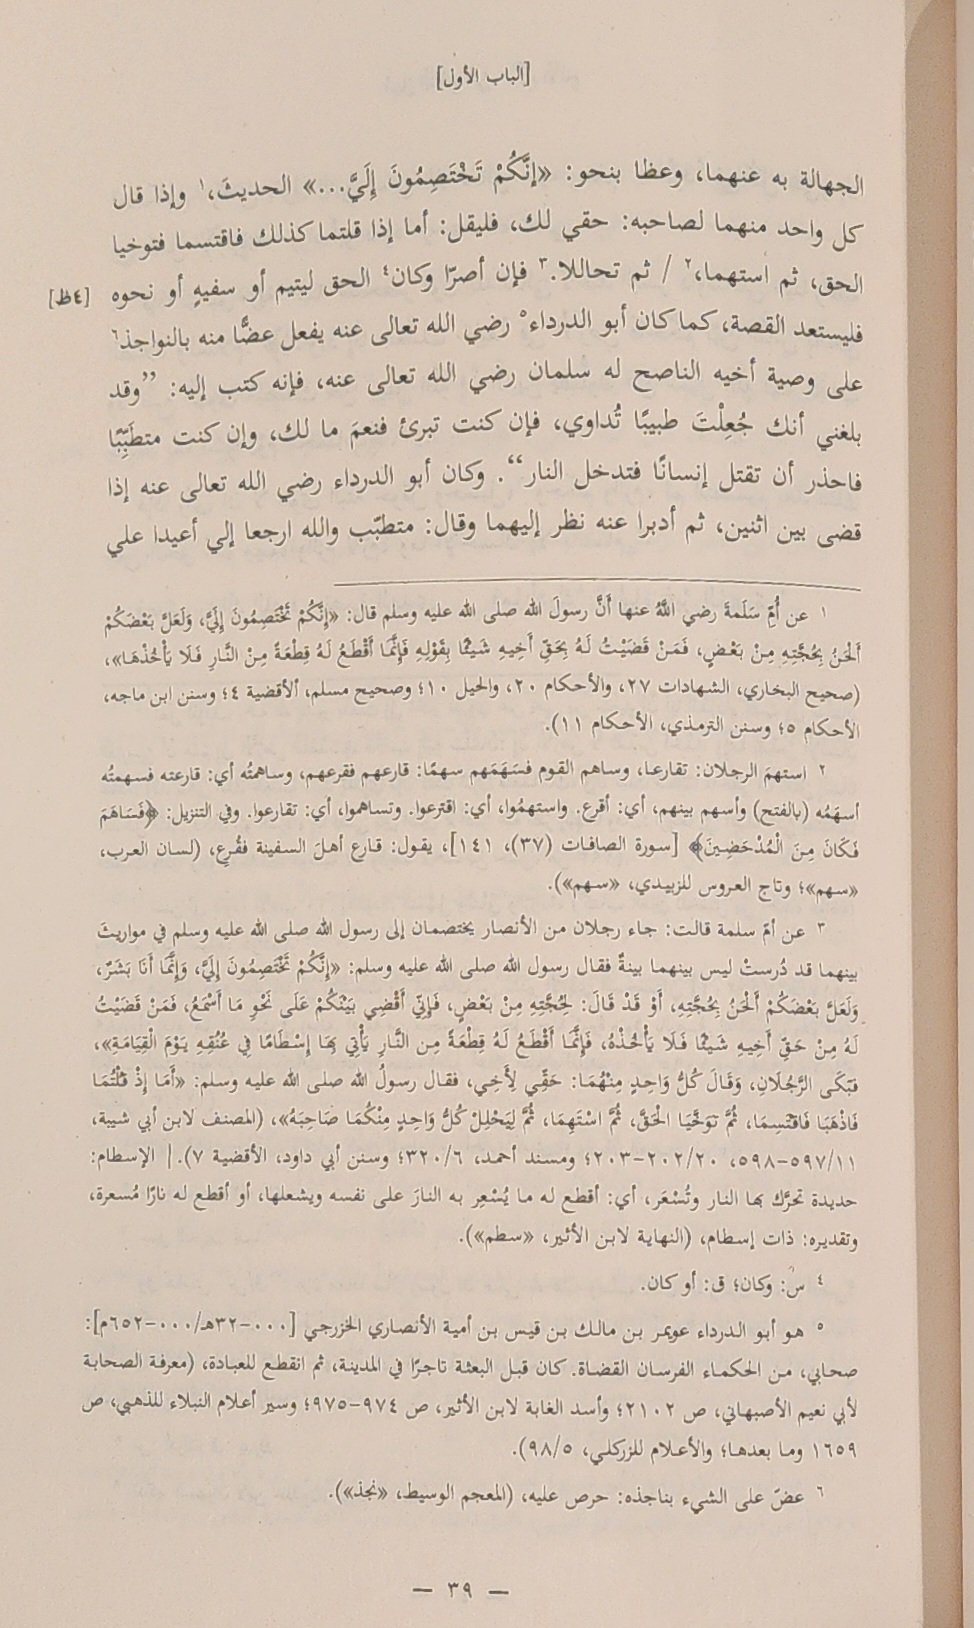 [الباب الأول]
الجهالة به عنهما، وعظا بنحو: «إنَّكُمْ تَخْتَصِمُونَ إِلَيَّ...» الحديثَ،١ وإذا قال
كل واحد منهما لصاحبه: حقي لك، فليقل: أما إذا قلتما كذلك فاقتسما فتوخيا
الحق، ثم استهما،٢ / ثم تحاللا.٣ فإن أصرّا وكان٤ الحق ليتيم أو سفيهٍ أو نحوه
[٤ظ]
فليستعد القصة، كما كان أبو الدرداء٥ رضي الله تعالى عنه يفعل عضًّا منه بالنواجذ٦
على وصية أخيه الناصح له سلمان رضي الله تعالى عنه، فإنه كتب إليه: ”وقد
بلغني أنك جُعِلْتَ طبيبًا تُداوي، فإن كنت تبرئ فنعمَ ما لك، وإن كنت متطَبِّبًا
فاحذر أن تقتل إنسانًا فتدخل النار“. وكان أبو الدرداء رضي الله تعالى عنه إذا
قضى بين اثنين، ثم أدبرا عنه نظر إليهما وقال: متطبّب والله ارجعا إلي أعيدا علي
١ عن أُمِّ سَلَمةَ رضي اللَّهُ عنها أَنَّ رسولَ الله صلى الله عليه وسلم قال: «إِنَّكُمْ تَخْتَصِمُونَ إِلَيَّ، وَلَعَلَّ بَعْضَكُمْ
أَلْحَنُ بِحُجَّتِهِ مِنْ بَعْضٍ، فَمَنْ قَضَيْتُ لَهُ بِحَقِّ أَخِيهِ شَيئًا بِقَوْلِهِ فَإِنَّمَا أَقْطَعُ لَهُ قِطْعَةً مِنْ النَّارِ فَلَا يَأْخُذْهَا»،
(صحيح البخاري، الشهادات ٢٧، والأحكام ٢٠، والحيل ١٠؛ وصحيح مسلم، ألأقضية ٤؛ وسنن ابن ماجه،
الأحكام ٥؛ وسنن الترمذي، الأحكام ١١).
٢ استهمَ الرجلان: تقارعا، وساهم القوم فسَهَمَهم سهمًا: قارعهم فقرعهم، وساهمتُه أي: قارعته فسهمتُه
أسهَمُه (بالفتح) وأسهم بينهم، أي: أقرع. واستهمُوا، أي: اقترعوا. وتساهموا، أي: تقارعوا. وفي التنزيل: ﴿فَسَاهَمَ
فَكَانَ مِنَ الْمُدْحَضِينَ﴾ [سورة الصافات (٣٧)، ١٤١]، يقول: قارع أهلَ السفينة فقُرِع، (لسان العرب،
«سهم»؛ وتاج العروس للزبيدي، «سهم»).
٣ عن أمّ سلمة قالت: جاء رجلان من الأنصار يختصمان إلى رسول الله صلى الله عليه وسلم في مواريثَ
بينهما قد دُرستْ ليس بينهما بينةٌ فقال رسول الله صلى الله عليه وسلم: «إِنَّكُمْ تَخْتَصِمُونَ إِلَيَّ، وَإِنَّمَا أَنَا بَشَرٌ،
وَلَعَلَّ بَعْضَكُمْ أَلْحَنُ بِحُجَّتِهِ، أَوْ قَدْ قَالَ: لِحُجَّتِهِ مِنْ بَعْضٍ، فَإِنِّي أَقْضِي بَيْنَكُمْ عَلَى نَحْوِ مَا أَسْمَعُ، فَمَنْ قَضَيْتُ
لَهُ مِنْ حَقِّ أَخِيهِ شَيئًا فَلَا يَأْخُذْهُ، فَإِنَّمَا أَقْطَعُ لَهُ قِطْعَةً مِن النَّارِ يَأْتِي بِهَا إِسْطَامًا فِي عُنُقِهِ يَوْمَ الْقِيَامَةِ»،
فَبَكَى الرَّجُلَانِ، وَقَالَ كُلُّ وَاحِدٍ مِنْهُمَا: حَقِّي لِأَخِي، فقال رسولُ الله صلى الله عليه وسلم: «أَمَا إِذْ قُلْتُمَا
فَاذْهَبَا فَاقْتَسِمَا، ثُمَّ تَوَخَّيَا الْحَقَّ، ثُمَّ اسْتَهِمَا، ثُمَّ لِيَحْلِلْ كُلُّ وَاحِدٍ مِنْكُمَا صَاحِبَهُ»، (المصنف لابن أبي شيبة،
٥٩٧/١١-٥٩٨، ٢٠٢/٢٠-٢٠٣؛ ومسند أحمد، ٣٢٠/٦؛ وسنن أبي داود، الأقضية ٧). | الإسطام:
حديدة تحرَّك بها النار وتُسْعَر، أي: أقطع له ما يُسْعِر به النارَ على نفسه ويشعلها، أو أقطع له نارًا مُسعرة،
وتقديره: ذات إسطام، (النهاية لابن الأثير، «سطم»).
٤ س: وكان؛ ق: أو كان.
٥ هو أبو الدرداء عويمر بن مالك بن قيس بن أمية الأنصاري الخزرجي [٠٠٠-٣٢هـ/٠٠٠-٦٥٢م]:
صحابي، من الحكماء الفرسان القضاة. كان قبل البعثة تاجرًا في المدينة، ثم انقطع للعبادة، (معرفة الصحابة
لأبي نعيم الأصبهاني، ص ٢١٠٢؛ وأسد الغابة لابن الأثير، ص ٩٧٤-٩٧٥؛ وسير أعلام النبلاء للذهبي، ص
١٦٥٩ وما بعدها؛ والأعلام للزركلي، ٩٨/٥).
٦ عضّ على الشيء بناجذه: حرص عليه، (المعجم الوسيط، «نجذ»).
— ٣٩ —